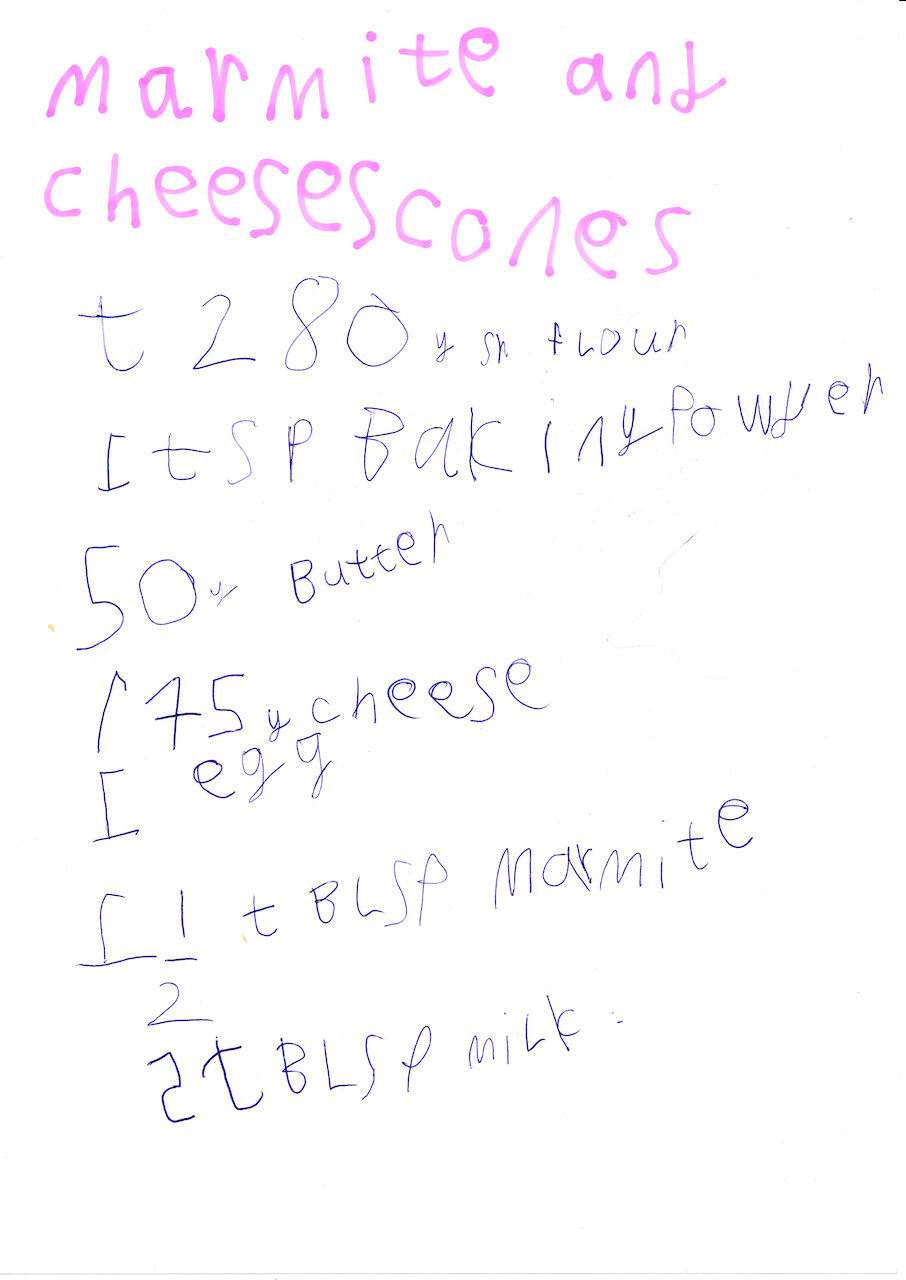 marmite and
cheesescones
t 280g SR fLOUR
1 tSP BaKing PowdeR
50g ButteR
175g cheese
1 egg
1 1/2 tBLSP Marmite
2tBLSP miLk.